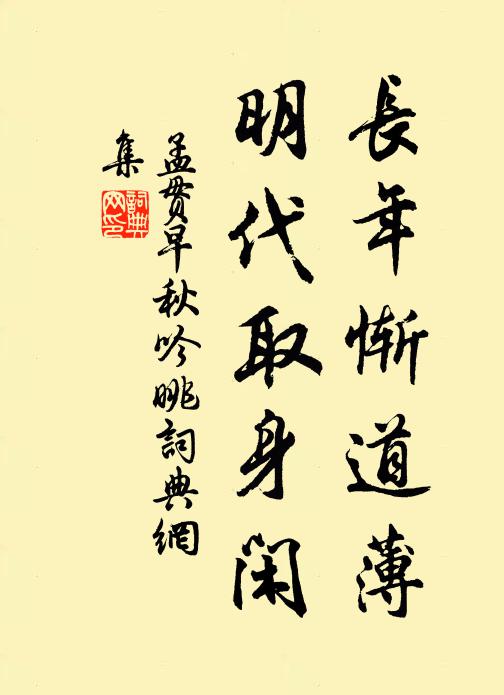 長年慚道薄
明代取身闲
孟贯早秋吟眺詞典網
集
詞典
网印